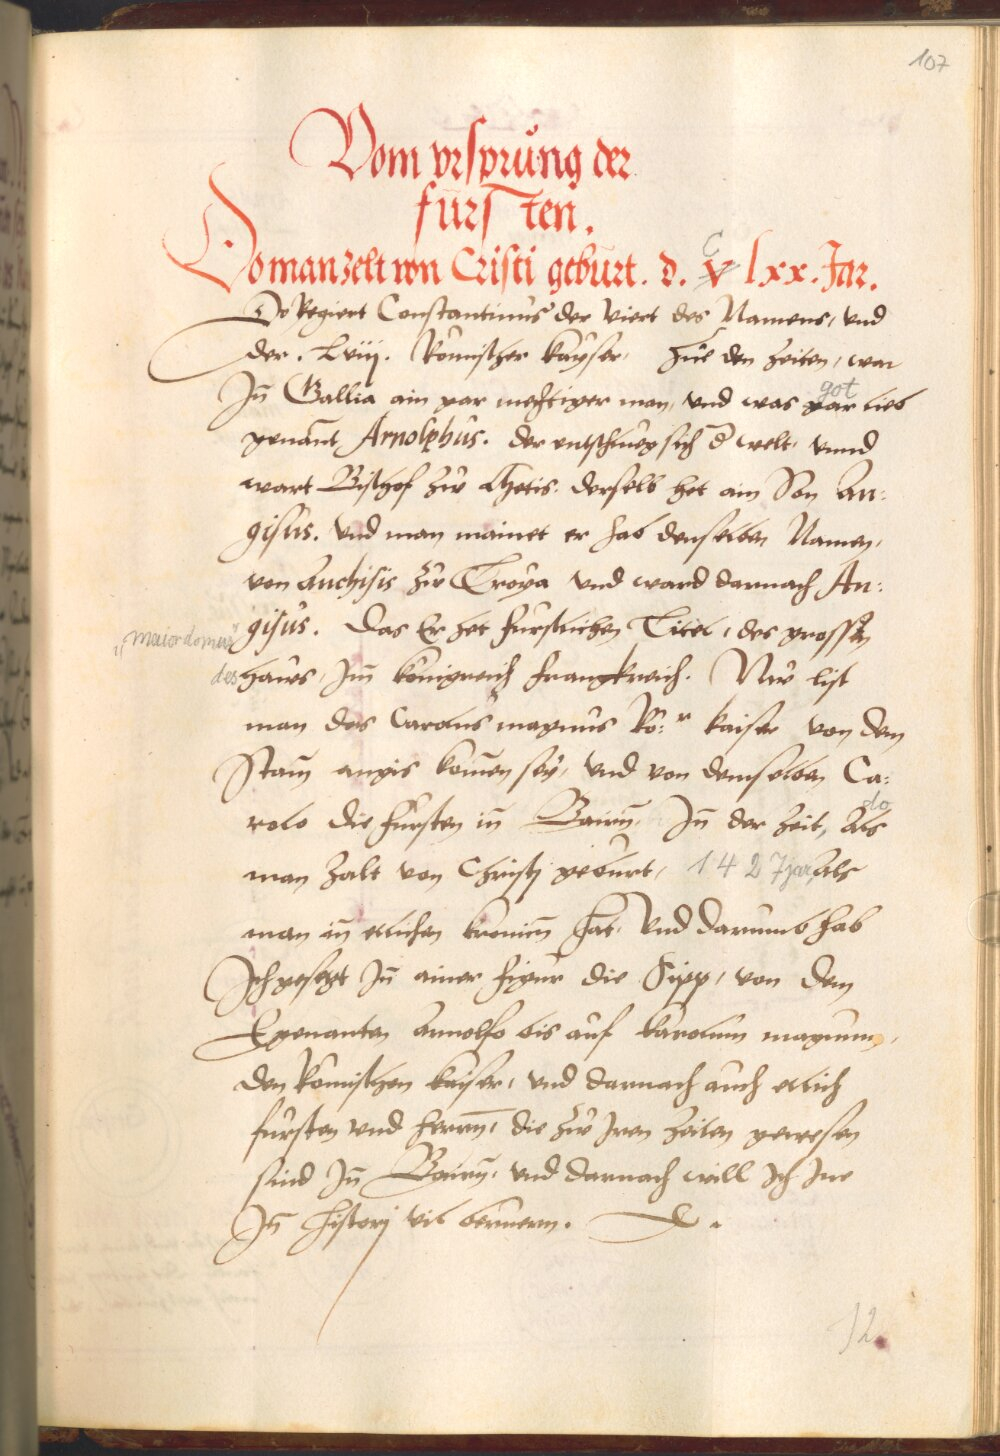 107
Vom vrsprůng der
fürsten.
Do man zelt von Cristi gebürt. d. c v lxx. Jar.
Do Regiert Constantinus der Viert des Namens, vnd
der. Lviij. Römischer kayser, Zůe den Zeiten, war
Jn̄ Gallia ain gar mechtiger man, vnd was gar got lieb
genant Arnolphus. der entschlueg sich d' welt, vnnd
wart Bischof zů Metis. derselb het ain Son An:
gisus. vnd man mainet er hab denselben Namen,
von Anchisis zů Troya vnd ward darnach An:
gisus. Das Er het fürstlichen Titel, des grossen
maior domus
des haws, Jm̄ königreich Frangkreich. Nůn list
man das Carolus magnus Rö:r kaiser von dem
Stam̄ angis komen seÿ, vnd von demselben Ca:
rolo die fürsten in̄ Bairn̄, Jn̄ der Zeit, do als
man Zalt von Christj geburt, 1427 jar, als
man in̄ etlichen kronicn̄ hat. Vnd darumb hab
Jch gesetzt Jn̄ ainer figur die Sipp, von dem
Egenanten Arnolfo bis auf karolum magnum,
den Römischen kaiser, vnd darnach auch etlich
fürsten vnd herrn̄, die zů Jren Zeiten gewesen
sind Jn̄ Bairn̄, vnd darnach will Jch Jne
Jn̄ historj vil beruern.
12